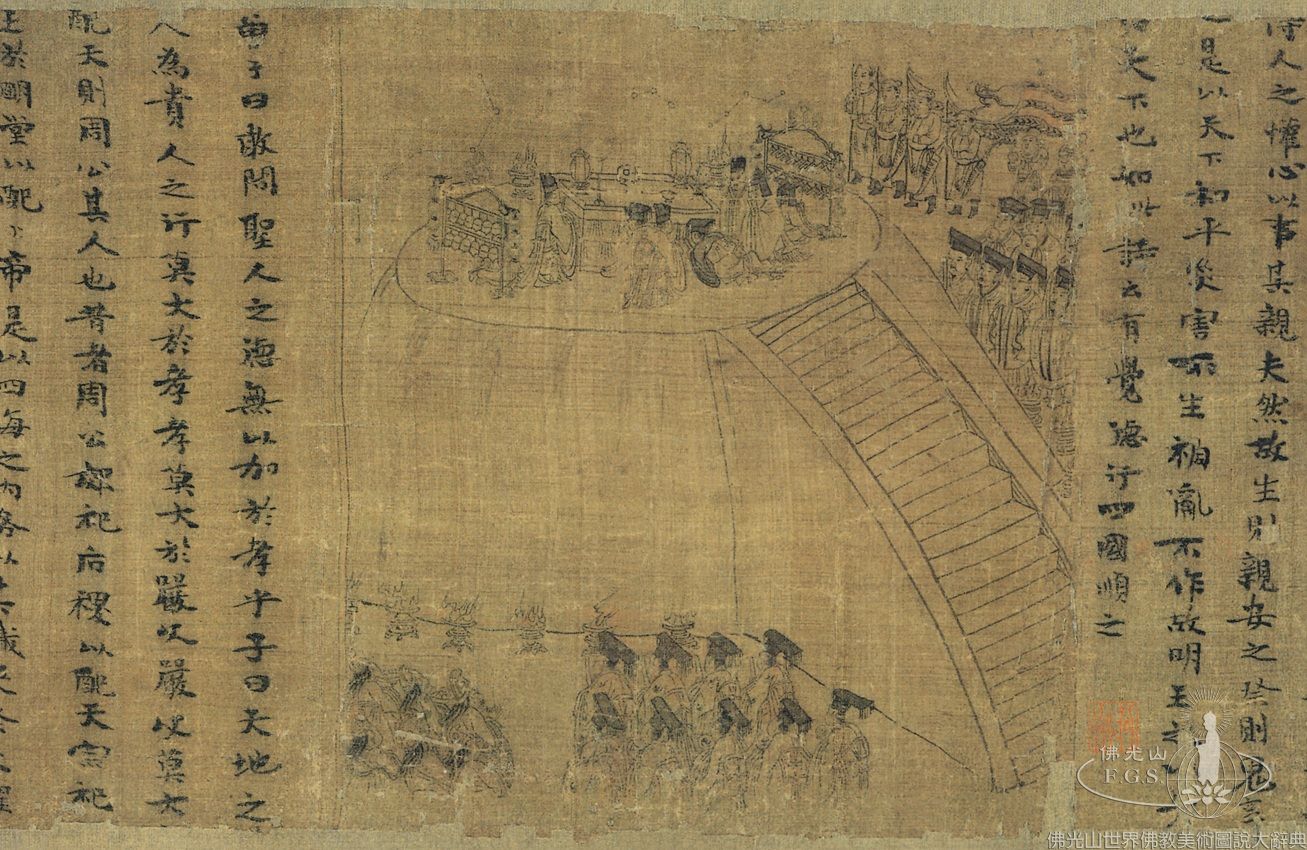 得人之懽心以事其親夫然故生則親安之祭則鬼享
是以天下和平災害不生禍亂不作故明王之
天下也如此詩云有覺德行四國順之
曾子曰敢問聖人之德無以加於孝乎子曰天地之
人為貴人之行莫大於孝孝莫大於嚴父嚴父莫大
配天則周公其人也昔者周公郊祀后稷以配天宗祀
王於明堂以配上帝是以四海之內各以其職來祭夫聖
佛光山
F.G.S.
佛光山世界佛教美術圖說大辭典